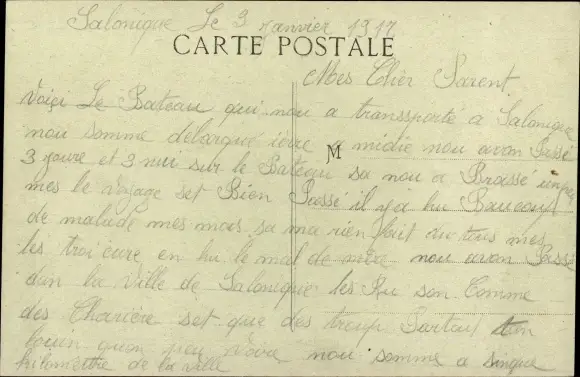 Salonique Le 3 janvier 1917
CARTE POSTALE
Mes Cher Parent.
Voici Le Bateau qui nou a transporté a Salonique
nou somme debarqué ière a midie nou avon Passé
M
3 joure et 3 nui sur le Bateau sa nou a Brassé un peu
mes le voyage set Bien Passé il y a hu Baucoup
de malade mes moi sa ma rien fait du tous mes
les troi cure en hu le mal de mére nou avon Passé
dan la ville de Salonique les Ru son Comme
des Charière set que des troup Partout
louin quon peu voire nou somme a sinque
kilomettre de la ville